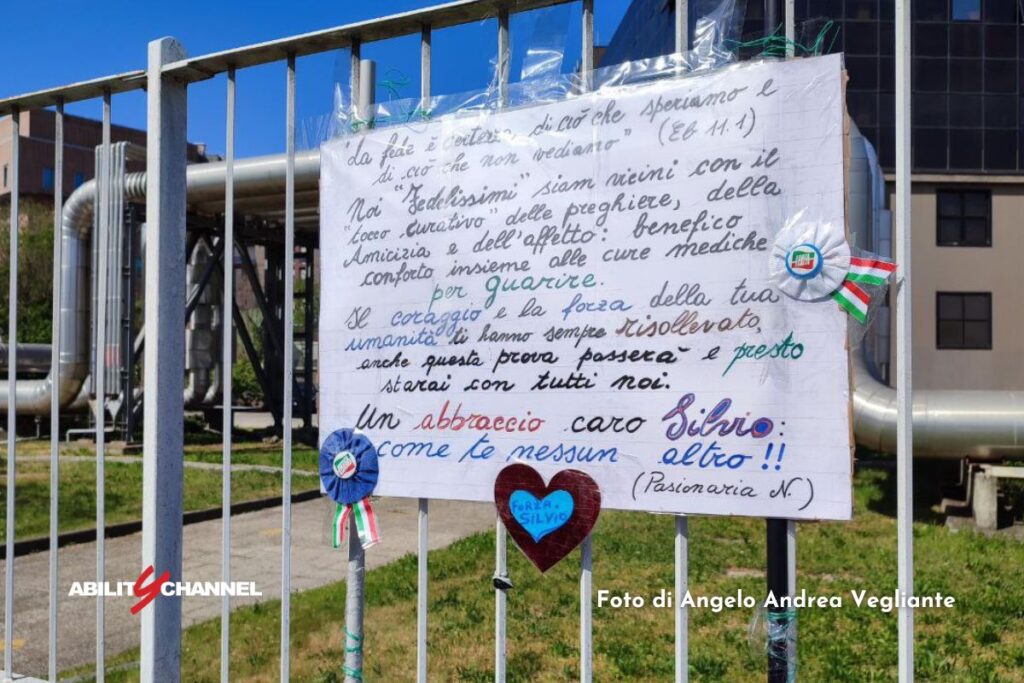 "La fede è certezza di ciò che speriamo e
di ciò che non vediamo" (Eb 11.1)
Noi "Fedelissimi" siam vicini con il
"tocco curativo" delle preghiere, della
Amicizia e dell'affetto: benefico
conforto insieme alle cure mediche
per guarire.
Il coraggio e la forza della tua
umanità ti hanno sempre risollevato,
anche questa prova passerà e presto
starai con tutti noi.
Un abbraccio caro Silvio:
come te nessun altro!!
(Pasionaria N.)
FORZA
SILVIO
ABILITYCHANNEL
Foto di Angelo Andrea Vegliante